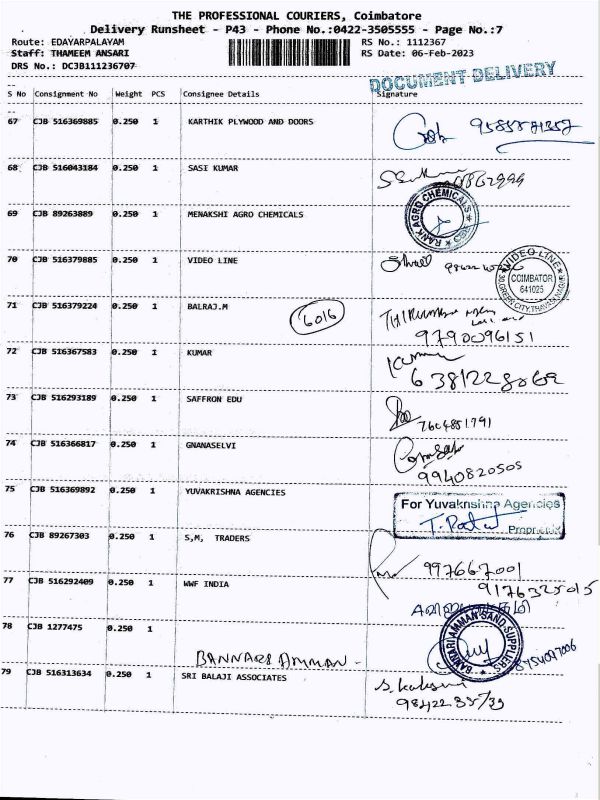 THE PROFESSIONAL COURIERS, Coimbatore
Delivery Runsheet - P43 - Phone No.:0422-3505555 - Page No.:7
Route: EDAYARPALAYAM RS No.: 1112367
Staff: THAMEEM ANSARI RS Date: 06-Feb-2023
DRS No.: DCJB111236707
DOCUMENT DELIVERY
S No Consignment No Weight PCS Consignee Details Signature
67 CJB 516369885 0.250 1 KARTHIK PLYWOOD AND DOORS
68 CJB 516043184 0.250 1 SASI KUMAR
69 CJB 89263889 0.250 1 MENAKSHI AGRO CHEMICALS
RANK AGRO CHEMICALS
70 CJB 516379885 0.250 1 VIDEO LINE
VIDEO LINE
COIMBATOR
641025
71 CJB 516379224 0.250 1 BALRAJ.M 6016
9790096151
72 CJB 516367583 0.250 1 KUMAR
Kumar
6381228069
73 CJB 516293189 0.250 1 SAFFRON EDU
7604851791
74 CJB 516366817 0.250 1 GNANASELVI
9940820505
75 CJB 516369892 0.250 1 YUVAKRISHNA AGENCIES
For Yuvakrishna Agencies
76 CJB 89267303 0.250 1 S,M, TRADERS
997667001
77 CJB 516292409 0.250 1 WWF INDIA
9176325015
78 CJB 1277475 0.250 1
BANNARI AMMAN -
BANNARI AMMAN SAND SUPPLIERS
79 CJB 516313634 0.250 1 SRI BALAJI ASSOCIATES